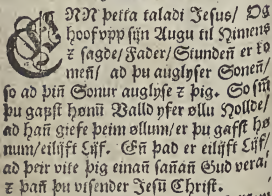 ENN þetta taladi Jesus/ Og
hoof vpp sijn Augu til Himens
ꝛ sagde/ Fader/ Stunden er ko
men/ ad þu auglyser Sonen/
so ad þin Sonur auglyse ꝛ þig. So sm
þu gapst honū Valld yfer øllu Hollde/
ad han giefe þeim øllum/er þu gafst hø
num/eilijft Lijf. En þad er eilijft Lijf/
ad þeir vite þig einan sañan Gud vera/
ꝛ þañ þu visender Jesū Christ.